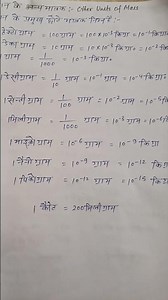 न के अन्य मात्रक :- Other Units Of Mass
न के प्रमुख छोटे मात्रक निम्न हैं:-
हेक्टोग्राम = 100ग्राम = 100×10⁻³किग्रा = 10⁻¹किग्रा
डेकाग्राम = 10 ग्राम = 10×10⁻³ किग्रा = 10⁻² किग्रा
ग्राम = 1/1000 = 10⁻³ किग्रा॰
1 डेसीग्राम = 1/10 ग्राम = 10⁻¹ ग्राम = 10⁻⁴ किग्रा
1 सेन्टीग्राम = 1/100 ग्राम = 10⁻² ग्राम = 10⁻⁵ कि
1 मिलीग्राम = 1/1000 ग्राम = 10⁻³ ग्राम = 10⁻⁶ कि
1 माइक्रोग्राम = 10⁻⁶ ग्राम = 10⁻⁹ किग्रा
1 नैनोग्राम = 10⁻⁹ ग्राम = 10⁻¹² किग्र
1 पिकोग्राम = 10⁻¹² ग्राम = 10⁻¹⁵ कि
1 कैरेट = 200मिलीग्राम